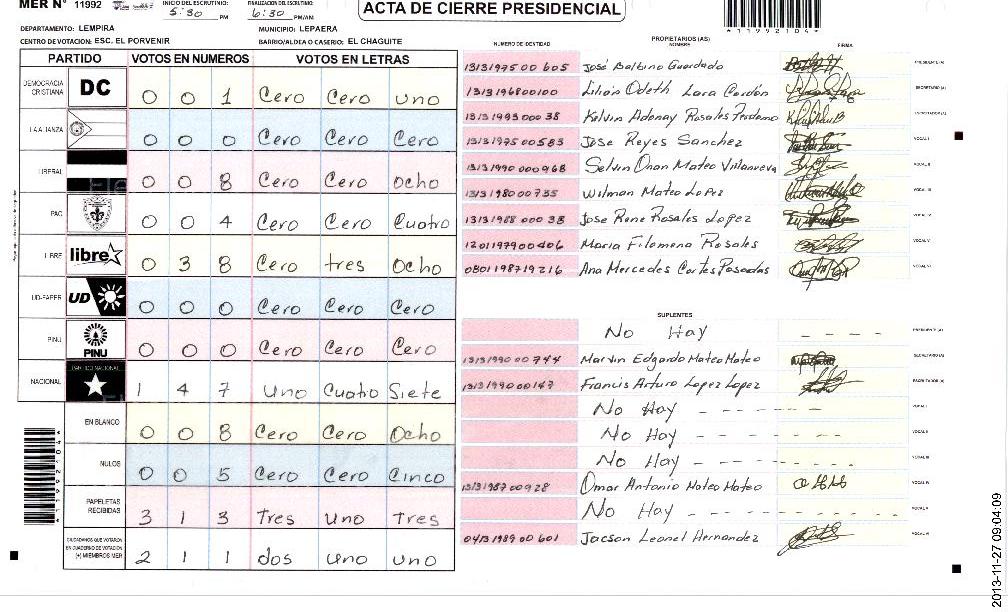 MER N° 11992
INICIO DEL ESCRUTINIO: 5:30 PM
FINALIZACION DEL ESCRUTINIO: 6:30 PM/AM
ACTA DE CIERRE PRESIDENCIAL
*11992104*
DEPARTAMENTO: LEMPIRA
MUNICIPIO: LEPAERA
CENTRO DE VOTACION: ESC. EL PORVENIR
BARRIO/ALDEA O CASERIO: EL CHAGUITE
PARTIDO VOTOS EN NUMEROS VOTOS EN LETRAS
DEMOCRACIA CRISTIANA DC 0 0 1 Cero Cero uno
LA ALIANZA 0 0 0 Cero Cero Cero
LIBERAL 0 0 8 Cero Cero Ocho
PAC 0 0 4 Cero Cero Cuatro
LIBRE libre 0 3 8 Cero tres Ocho
UD-FAPER UD 0 0 0 Cero Cero Cero
PINU PINU 0 0 0 Cero Cero Cero
NACIONAL PARTIDO NACIONAL 1 4 7 Uno Cuatro Siete
EN BLANCO 0 0 8 Cero Cero Ocho
NULOS 0 0 5 Cero Cero Cinco
PAPELETAS RECIBIDAS 3 1 3 Tres Uno Tres
CIUDADANOS QUE VOTARON EN CUADERNO DE VOTACION (+) MIEMBROS MER 2 1 1 dos Uno Uno
*11992104*
PROPIETARIOS (AS)
NUMERO DE IDENTIDAD NOMBRE FIRMA
1313197500605 José Balbino Guardado PRESIDENTE (A)
1313196800100 Lilian Odeth Lara Cordón SECRETARIO (A)
1313199300038 Kelvin Adonay Rosales Perdomo ESCRUTADOR (A)
1313197500583 Jose Reyes Sanchez VOCAL I
1313199000968 Selvin Onan Mateo Villanueva VOCAL II
1313198000735 Wilman Mateo Lopez VOCAL III
1313198800038 Jose Rene Rosales Lopez VOCAL IV
1201197900406 Maria Filomena Rosales VOCAL V
0801198719216 Ana Mercedes Cortes Posadas VOCAL VI
SUPLENTES
No Hay - - - PRESIDENTE (A)
1313199000744 Marvin Edgardo Mateo Mateo SECRETARIO (A)
1313199000147 Francis Arturo Lopez Lopez ESCRUTADOR (A)
No Hay - - - - - - - VOCAL I
No Hay - - - - - - - VOCAL II
No Hay - - - - - - - VOCAL III
1313198700928 Omar Antonio Mateo Mateo VOCAL IV
No Hay - - - - - - - VOCAL V
0413198900601 Jacson Leonel Hernandez VOCAL VI
2013-11-27 09:04:09